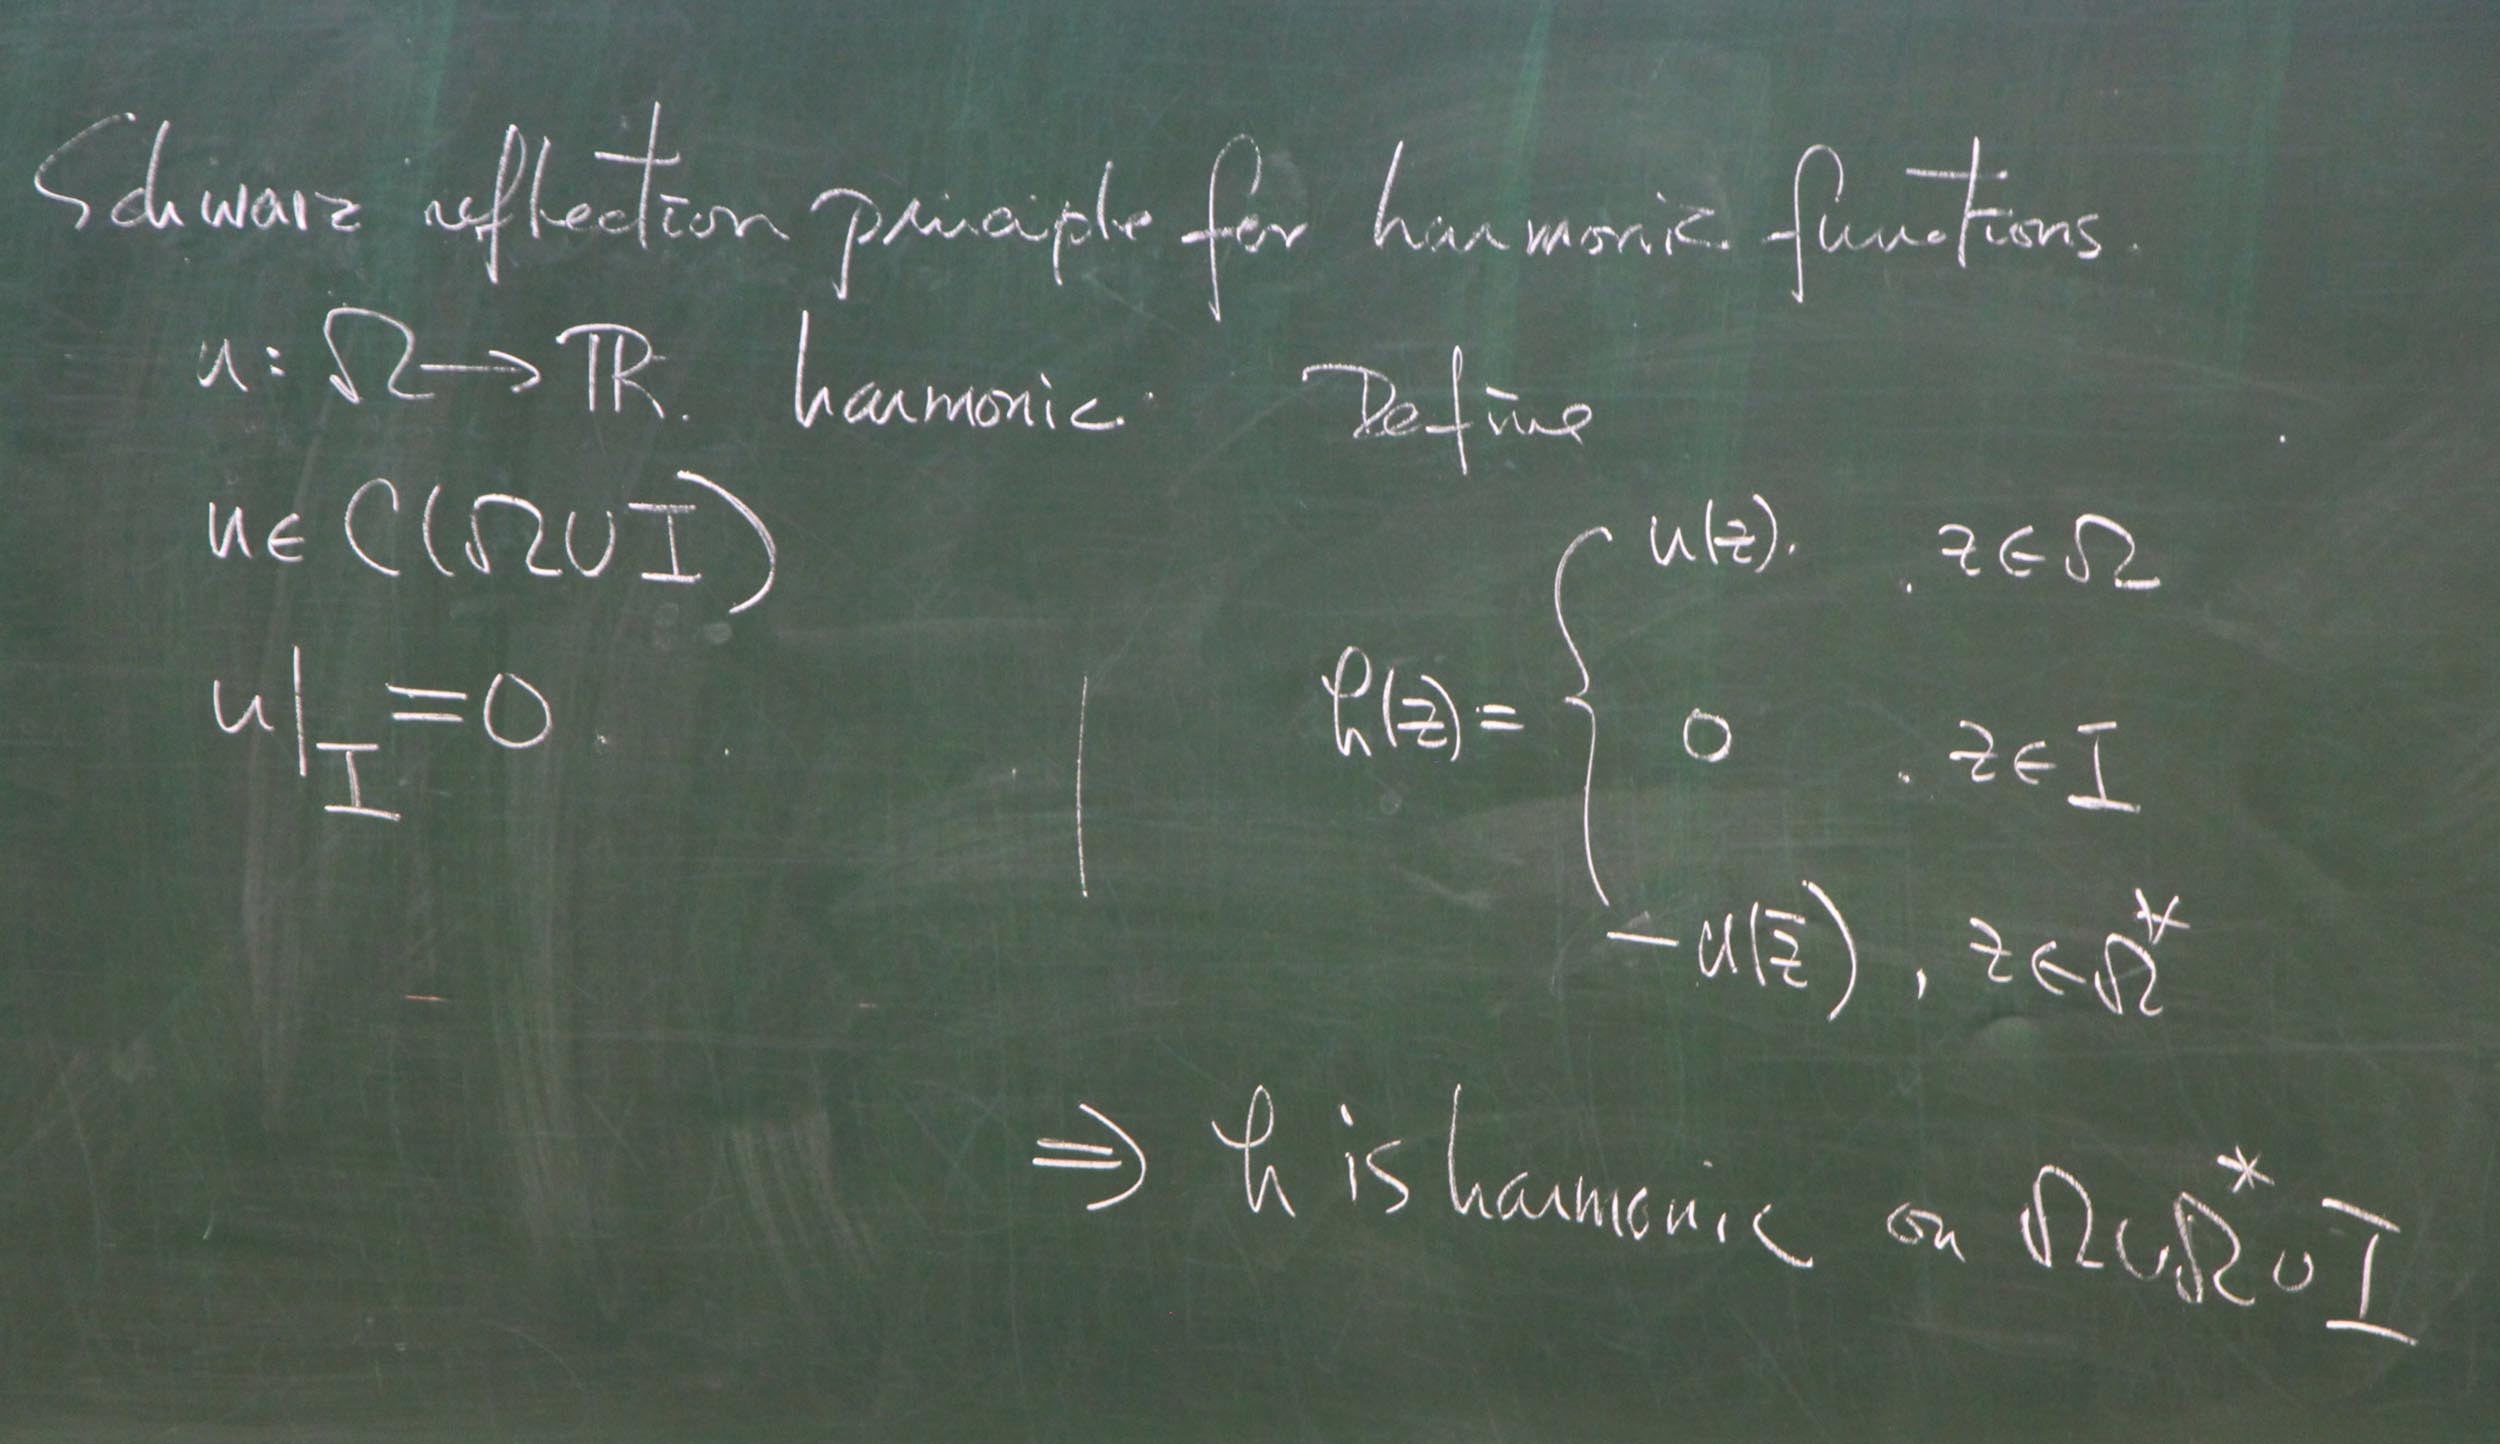 Schwarz reflection principle for harmonic functions.
u: Ω → ℝ. harmonic. Define
u ∈ C(Ω ∪ I)
u|_I = 0.
h(z) = { u(z). , z ∈ Ω
0 , z ∈ I
-u(z̄) , z ∈ Ω*
⇒ h is harmonic on Ω ∪ Ω* ∪ I